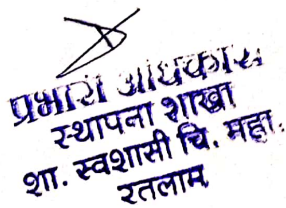 प्रभारी अधिकारी
स्थापना शाखा
शा. स्वशासी चि. महा.
रतलाम